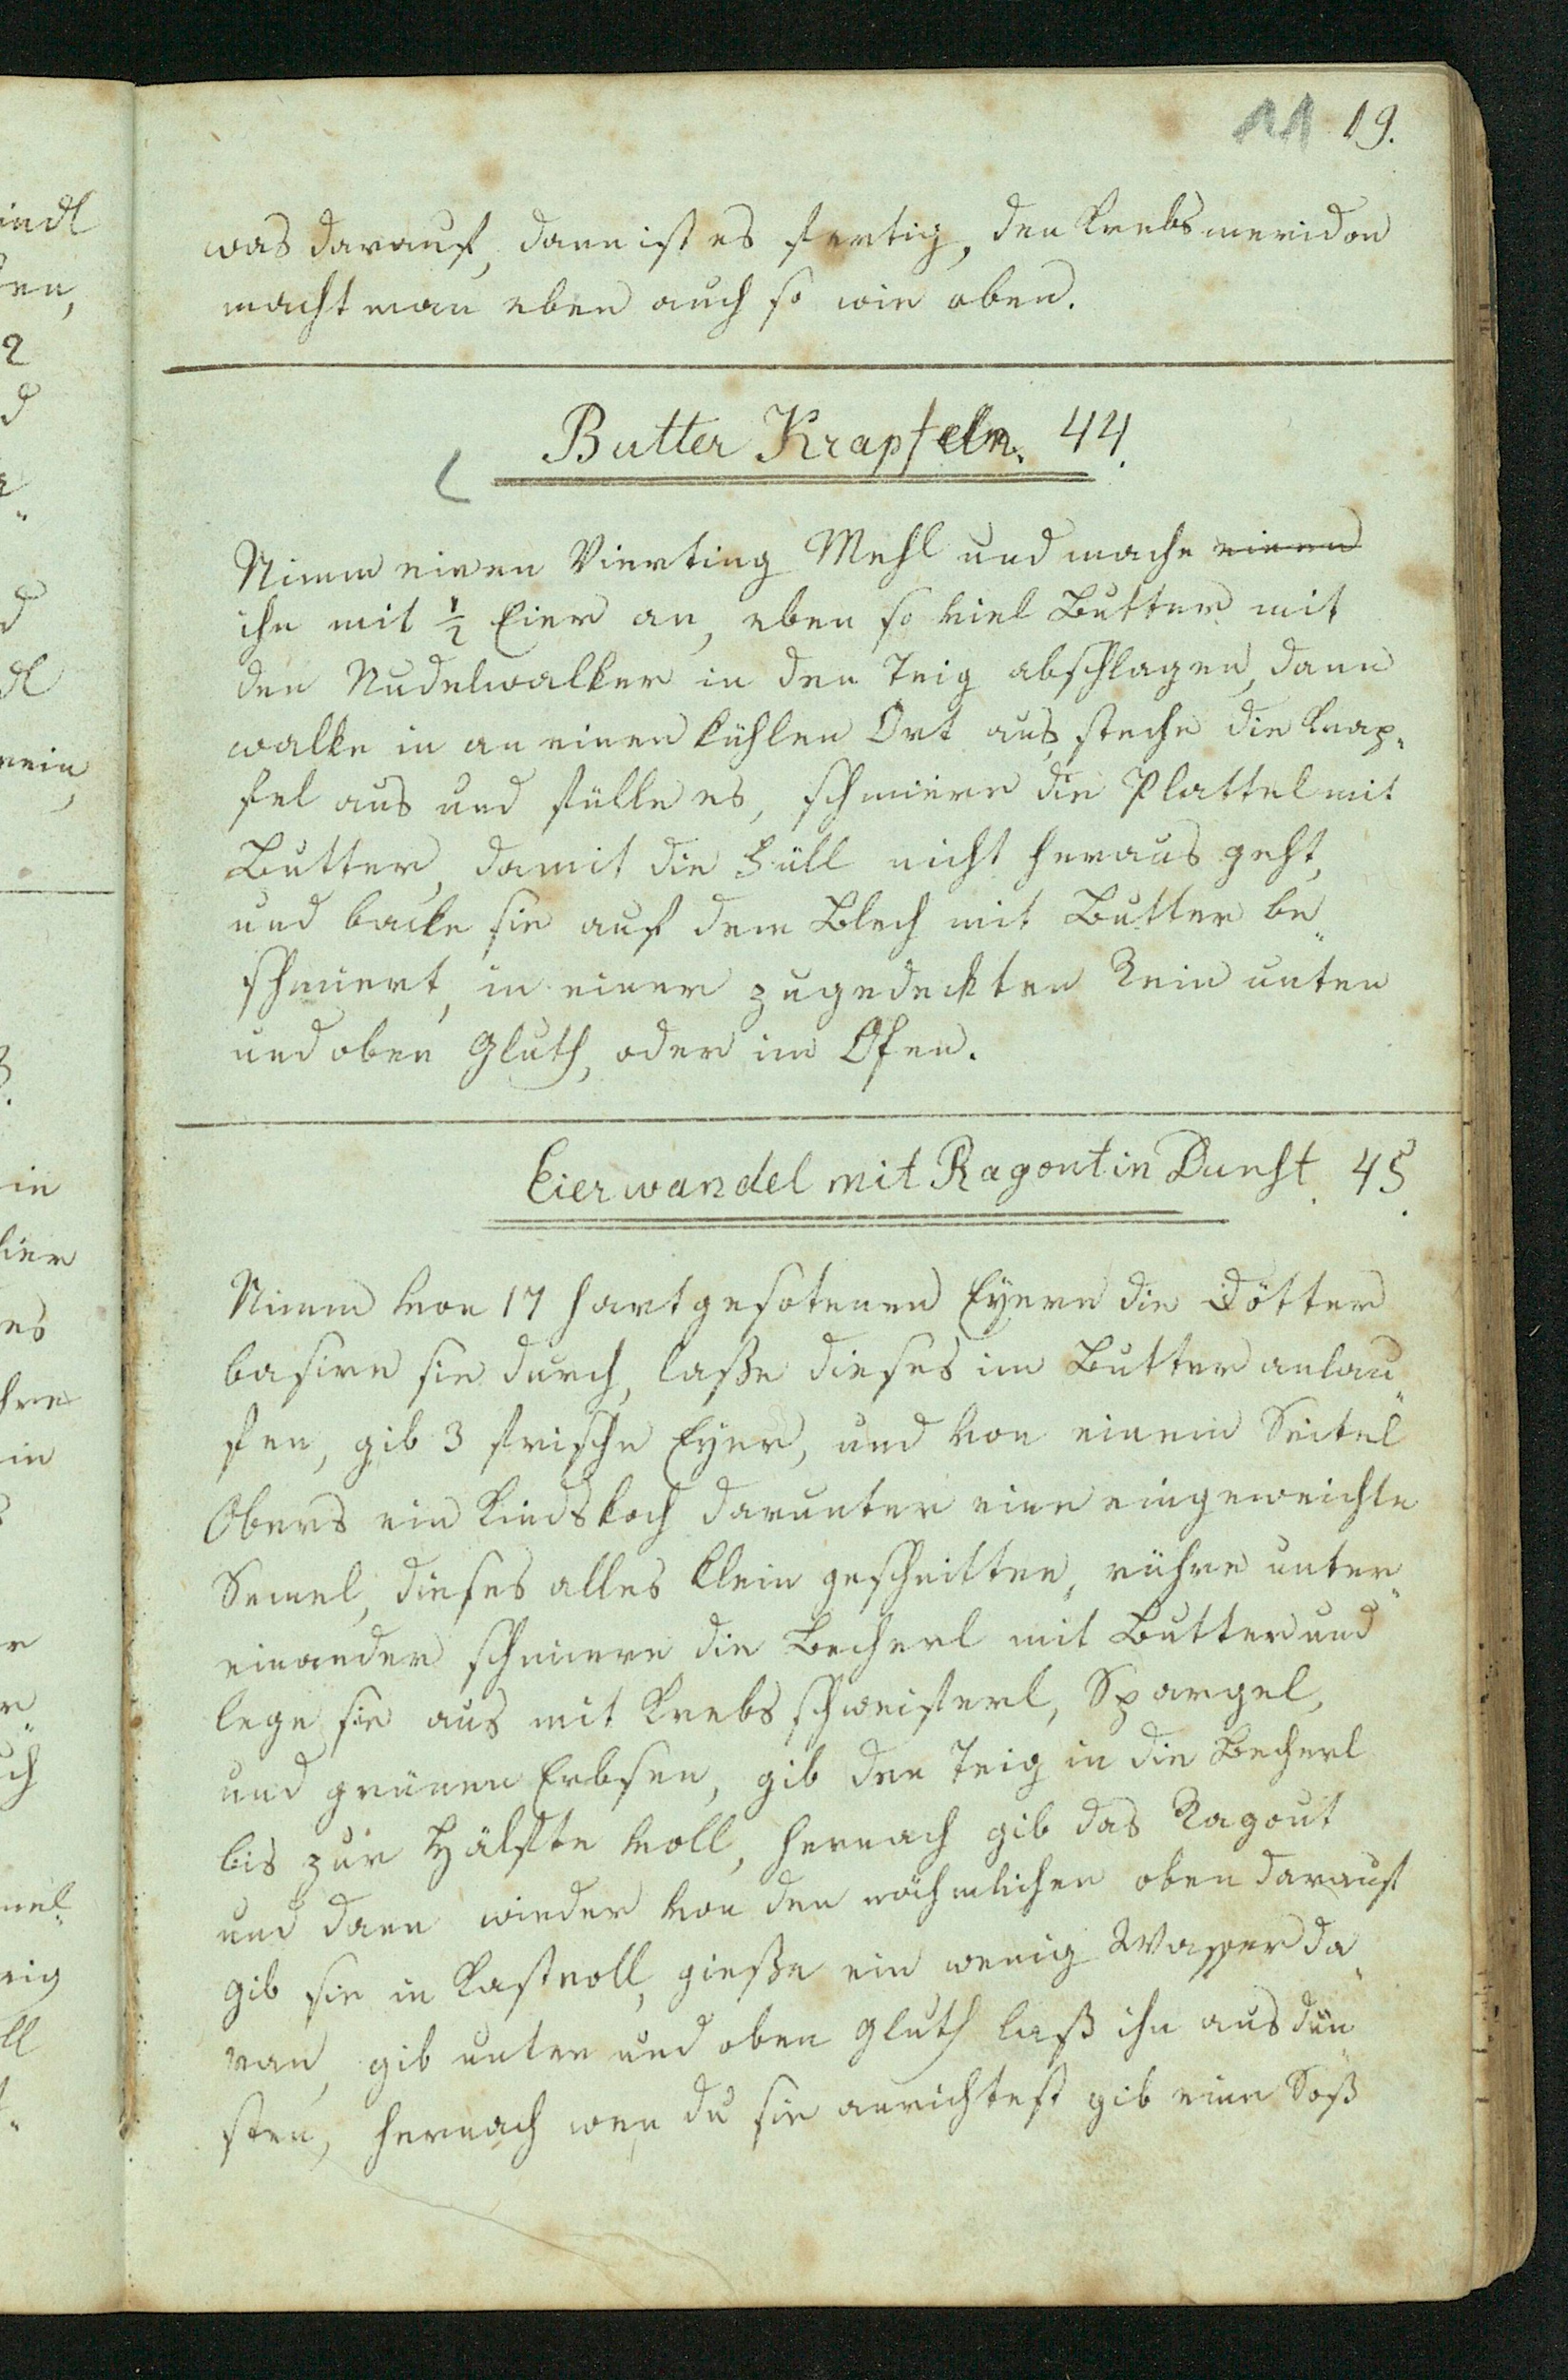 11 19.
was darauf, dann ist es fertig, den Krebsmeridon
macht man eben auch so wie oben.
Butter Krapfeln. 44.
Nimm einen Vierting Mehl und mache einen
ihn mit ½ Eier an, eben so viel Butter mit
den Nudelwalker in den Teig abschlagen, dann
walke in an einen kühlen Ort aus, steche die Krap„
fel aus und fülle es, schmiere die Plattel mit
Butter, damit die Füll nicht heraus geht,
und backe sie auf dem Blech mit Butter be„
schmiert, in einer zugedeckten Rein unten
und oben Gluth, oder im Ofen.
Eierwandel mit Ragout in Dunst. 45.
Nimm von 17 hartgesotenen Eyern die Dötter
basire sie durch, laße dieses im Butter anlau„
fen, gib 3 frische Eyer, und von einem Seitel
Obers ein Kindskoch darunter eine eingeweichte
Semel, dieses alles klein geschnitten, rühre unter„
einander schmiere die Becherl mit Butter und
lege sie aus mit Krebsschweiferl, Spargel,
und grünen Erbsen, gib den Teig in die Becherl
bis zur Hälfte voll, hernach gib das Ragout
und dann wieder von den nähmlichen oben darauf
gib sie in Kastroll, gieße ein wenig Wasser da„
ran, gib unten und oben Gluth laß ihn ausdün„
sten, hernach wen du sie anrichtest gib eine Soß